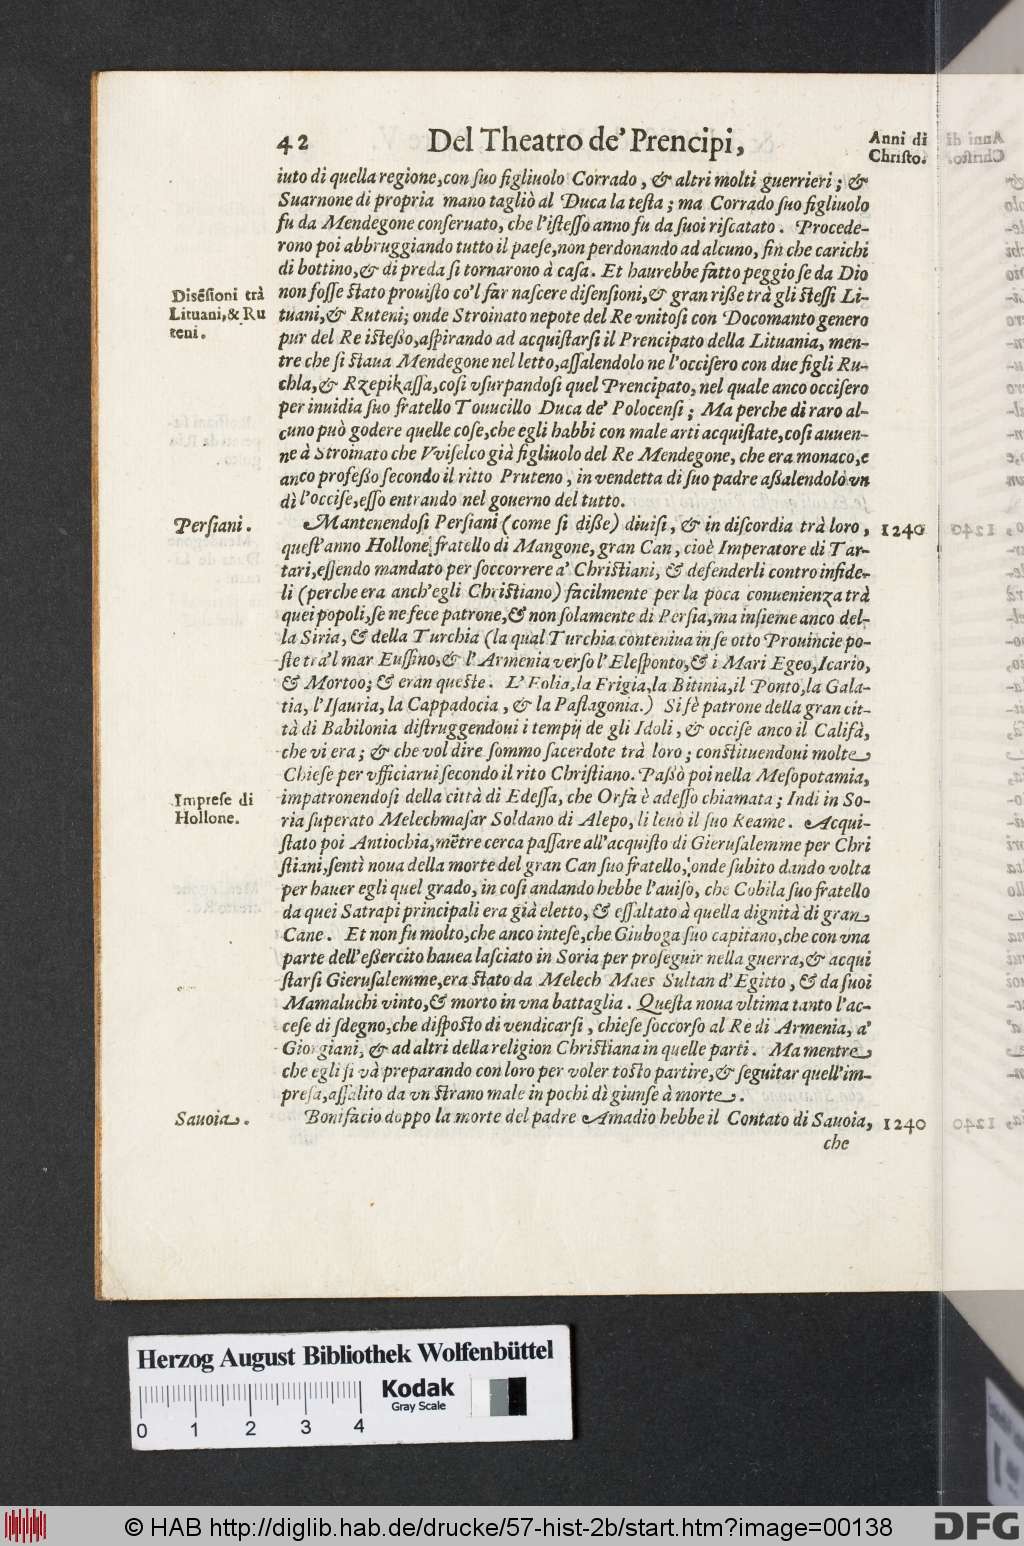 42 Del Theatro de' Prencipi, Anni di Christo.
iuto di quella regione, con ſuo figliuolo Corrado, & altri molti guerrieri; &
Suarnone di propria mano tagliò al Duca la teſta; ma Corrado ſuo figliuolo
fu da Mendegone conſeruato, che l'iſteſſo anno fu da ſuoi riſcatato. Procede-
rono poi abbruggiando tutto il paeſe, non perdonando ad alcuno, fin che carichi
di bottino, & di preda ſi tornarono à caſa. Et haurebbe fatto peggio ſe da Dio
Disẽſioni trà
Lituani, & Ru
teni.
non foſſe ſtato prouiſto co'l far naſcere diſenſioni, & gran riße trà gli ſteſſi Li-
tuani, & Ruteni; onde Stroinato nepote del Re vnitoſi con Docomanto genero
pur del Re iſteßo, aſpirando ad acquiſtarſi il Prencipato della Lituania, men-
tre che ſi ſtaua Mendegone nel letto, aſſalendolo ne l'occiſero con due figli Ru-
chla, & Rzepikaſſa, coſi vſurpandoſi quel Prencipato, nel quale anco occiſero
per inuidia ſuo fratello Touucillo Duca de' Polocenſi; Ma perche di raro al-
cuno può godere quelle coſe, che egli habbi con male arti acquiſtate, coſi auuen-
ne à Stroinato che Vviſelco già figliuolo del Re Mendegone, che era monaco, e
anco profeßo ſecondo il ritto Pruteno, in vendetta di ſuo padre aßalendolo vn
dì l'occiſe, eſſo entrando nel gouerno del tutto.
Perſiani.
Mantenendoſi Perſiani (come ſi diße) diuiſi, & in diſcordia trà loro, 1240
queſt'anno Hollone fratello di Mangone, gran Can, cioè Imperatore di Tar-
tari, eſſendo mandato per ſoccorrere a' Chriſtiani, & defenderli contro infide-
li (perche era anch'egli Chriſtiano) facilmente per la poca conuenienza trà
quei popoli, ſe ne fece patrone, & non ſolamente di Perſia, ma inſieme anco del-
la Siria, & della Turchia (la qual Turchia conteniua in ſe otto Prouincie po-
ſte trà'l mar Euſſino, & l'Armenia verſo l'Eleſponto, & i Mari Egeo, Icario,
& Mortoo; & eran queſte. L'Eolia, la Frigia, la Bitinia, il Ponto, la Gala-
tia, l'Iſauria, la Cappadocia, & la Paflagonia.) Si fè patrone della gran cit-
tà di Babilonia diſtruggendoui i tempij de gli Idoli, & occiſe anco il Califà,
che vi era; & che vol dire ſommo ſacerdote trà loro; conſtituendoui molte
Chieſe per vfficiarui ſecondo il rito Chriſtiano. Paßò poi nella Meſopotamia,
Impreſe di
Hollone.
impatronendoſi della città di Edeſſa, che Orfà è adeſſo chiamata; Indi in So-
ria ſuperato Melechmaſar Soldano di Alepo, li leuò il ſuo Reame. Acqui-
ſtato poi Antiochia, mẽtre cerca paſſare all'acquiſto di Gieruſalemme per Chri
ſtiani, ſentì noua della morte del gran Can ſuo fratello, onde ſubito dando volta
per hauer egli quel grado, in coſi andando hebbe l'auiſo, che Cobila ſuo fratello
da quei Satrapi principali era già eletto, & eſſaltato à quella dignità di gran
Cane. Et non fu molto, che anco inteſe, che Giuboga ſuo capitano, che con vna
parte dell'eßercito hauea laſciato in Soria per proſeguir nella guerra, & acqui
ſtarſi Gieruſalemme, era ſtato da Melech Maes Sultan d'Egitto, & da ſuoi
Mamaluchi vinto, & morto in vna battaglia. Queſta noua vltima tanto l'ac-
ceſe di ſdegno, che diſpoſto di vendicarſi, chieſe ſoccorſo al Re di Armenia, a'
Giorgiani, & ad altri della religion Chriſtiana in quelle parti. Ma mentre
che egli ſi và preparando con loro per voler toſto partire, & ſeguitar quell'im-
preſa, aſſalito da vn ſtrano male in pochi dì giunſe à morte.
Sauoia.
Bonifacio doppo la morte del padre Amadio hebbe il Contato di Sauoia, 1240
che
Herzog August Bibliothek Wolfenbüttel
Kodak
Gray Scale
0 1 2 3 4
© HAB http://diglib.hab.de/drucke/57-hist-2b/start.htm?image=00138
DFG